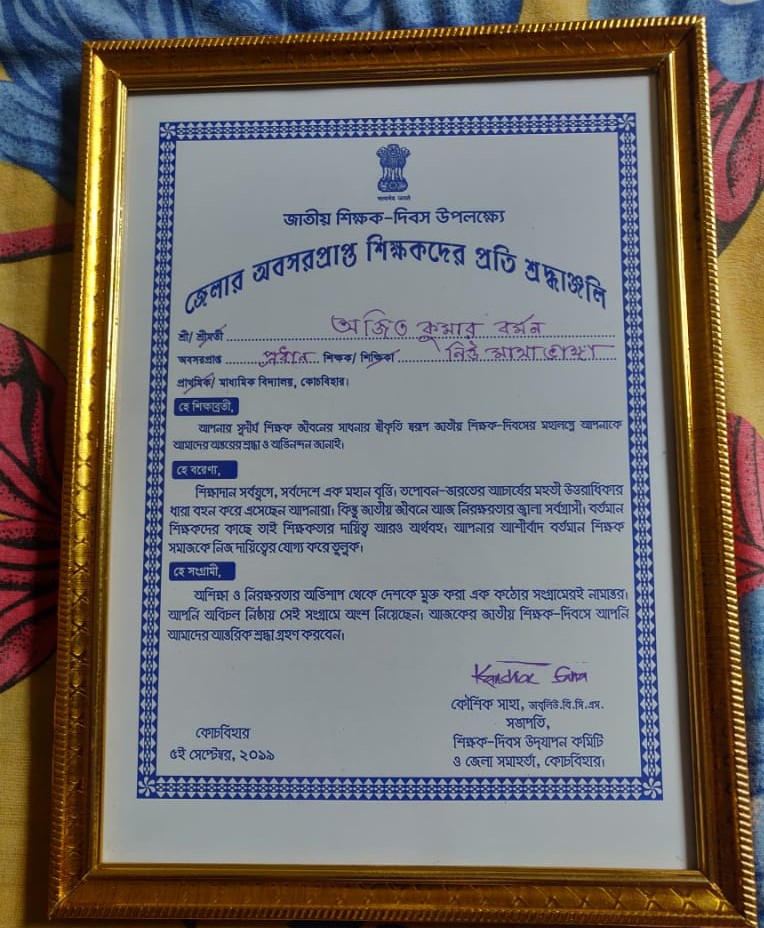 सत्यमेव जयते
জাতীয় শিক্ষক-দিবস উপলক্ষ্যে
জেলার অবসরপ্রাপ্ত শিক্ষকদের প্রতি শ্রদ্ধাঞ্জলি
শ্রী/ শ্রীমতী অজিত কুমার বর্মন
অবসরপ্রাপ্ত প্রধান শিক্ষক/ শিক্ষিকা নিউ মাথাভাঙ্গা
প্রাথমিক/ মাধ্যমিক বিদ্যালয়, কোচবিহার।
হে শিক্ষাব্রতী,
আপনার সুদীর্ঘ শিক্ষক জীবনের সাধনার স্বীকৃতি স্বরূপ জাতীয় শিক্ষক-দিবসের মহালগ্নে আপনাকে
আমাদের অন্তরের শ্রদ্ধা ও অভিনন্দন জানাই।
হে বরেণ্য,
শিক্ষাদান সর্বযুগে, সর্বদেশে এক মহান বৃত্তি। তপোবন-ভারতের আচার্যের মহতী উত্তরাধিকার
ধারা বহন করে এসেছেন আপনারা। কিন্তু জাতীয় জীবনে আজ নিরক্ষরতার জ্বালা সর্বগ্রাসী। বর্তমান
শিক্ষকদের কাছে তাই শিক্ষকতার দায়িত্ব আরও অর্থবহ। আপনার আশীর্বাদ বর্তমান শিক্ষক
সমাজকে নিজ দায়িত্বের যোগ্য করে তুলুক।
হে সংগ্রামী,
অশিক্ষা ও নিরক্ষরতার অভিশাপ থেকে দেশকে মুক্ত করা এক কঠোর সংগ্রামেরই নামান্তর।
আপনি অবিচল নিষ্ঠায় সেই সংগ্রামে অংশ নিয়েছেন। আজকের জাতীয় শিক্ষক-দিবসে আপনি
আমাদের আন্তরিক শ্রদ্ধা গ্রহণ করবেন।
কৌশিক সাহা, ডাবুলিউ.বি.সি.এস.
সভাপতি,
কোচবিহার শিক্ষক-দিবস উদ্‌যাপন কমিটি
৫ই সেপ্টেম্বর, ২০১৯ ও জেলা সমাহর্তা, কোচবিহার।